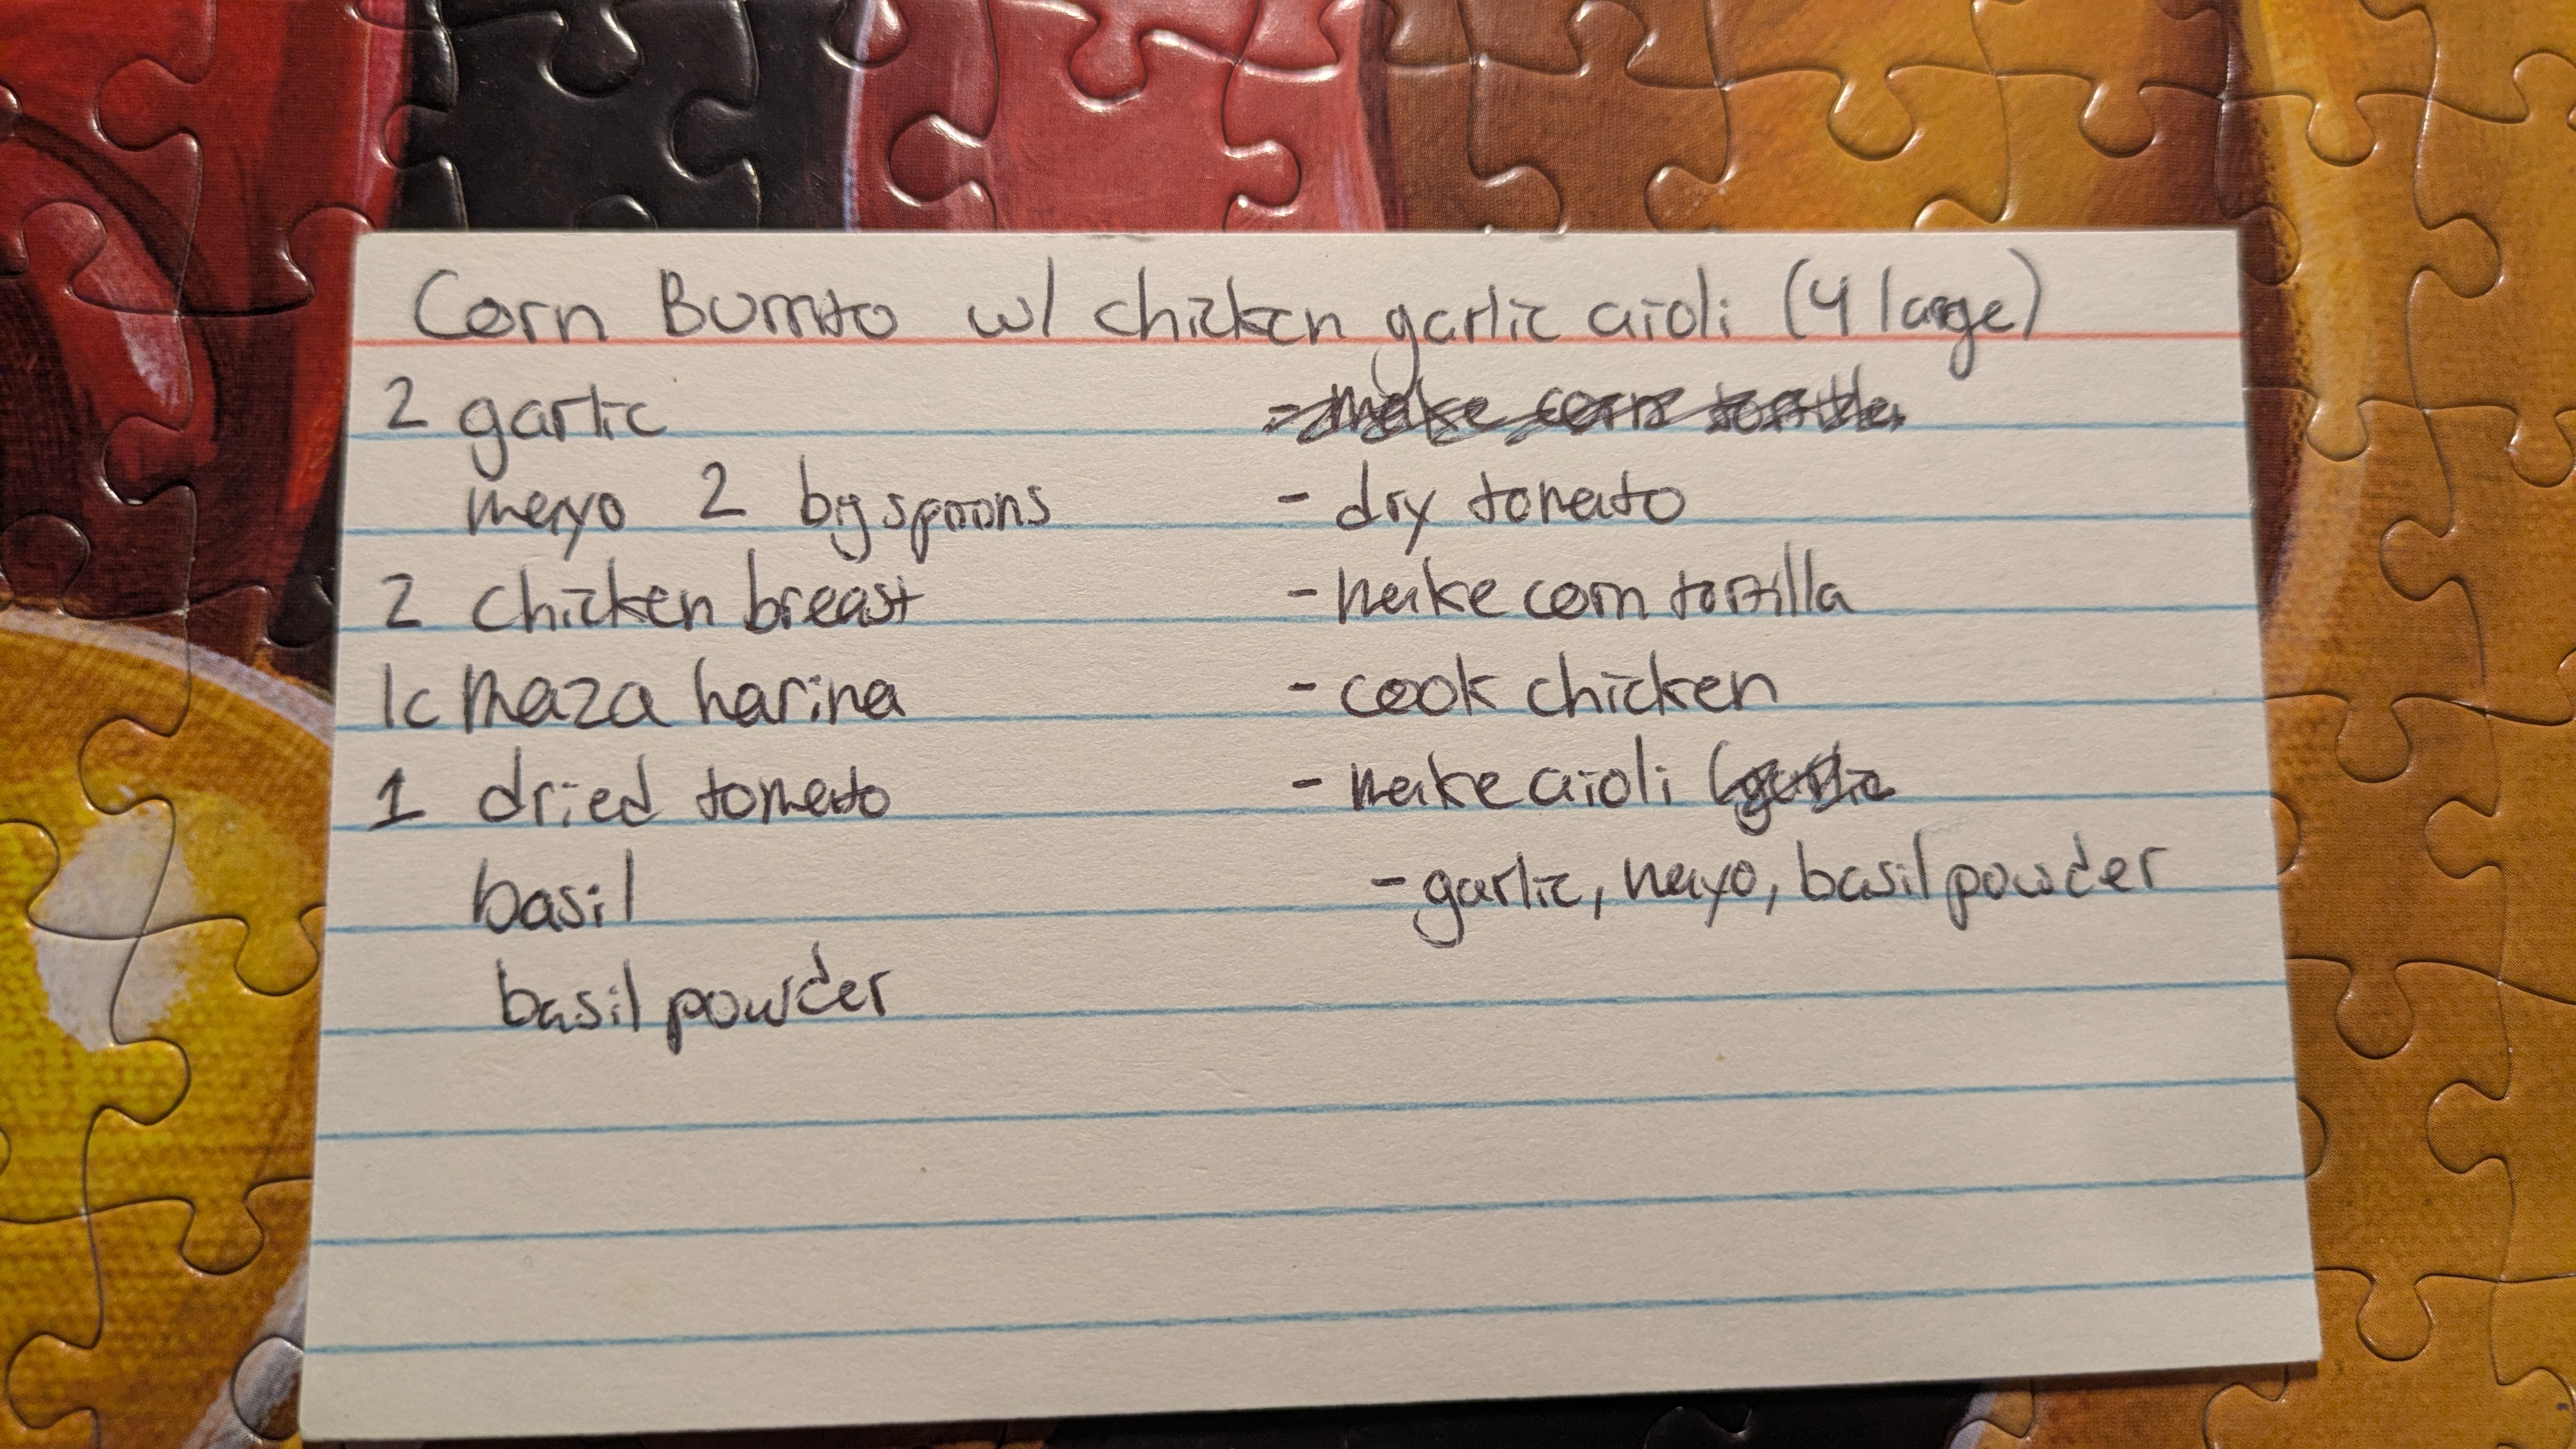 Corn Burrito w/ chicken garlic aioli (4 large)
2 garlic
mayo 2 big spoons
2 chicken breast
1c maza harina
1 dried tomato
basil
basil powder
- make corn tortilla
- dry tomato
- make corn tortilla
- cook chicken
- make aioli (garlic
- garlic, mayo, basil powder